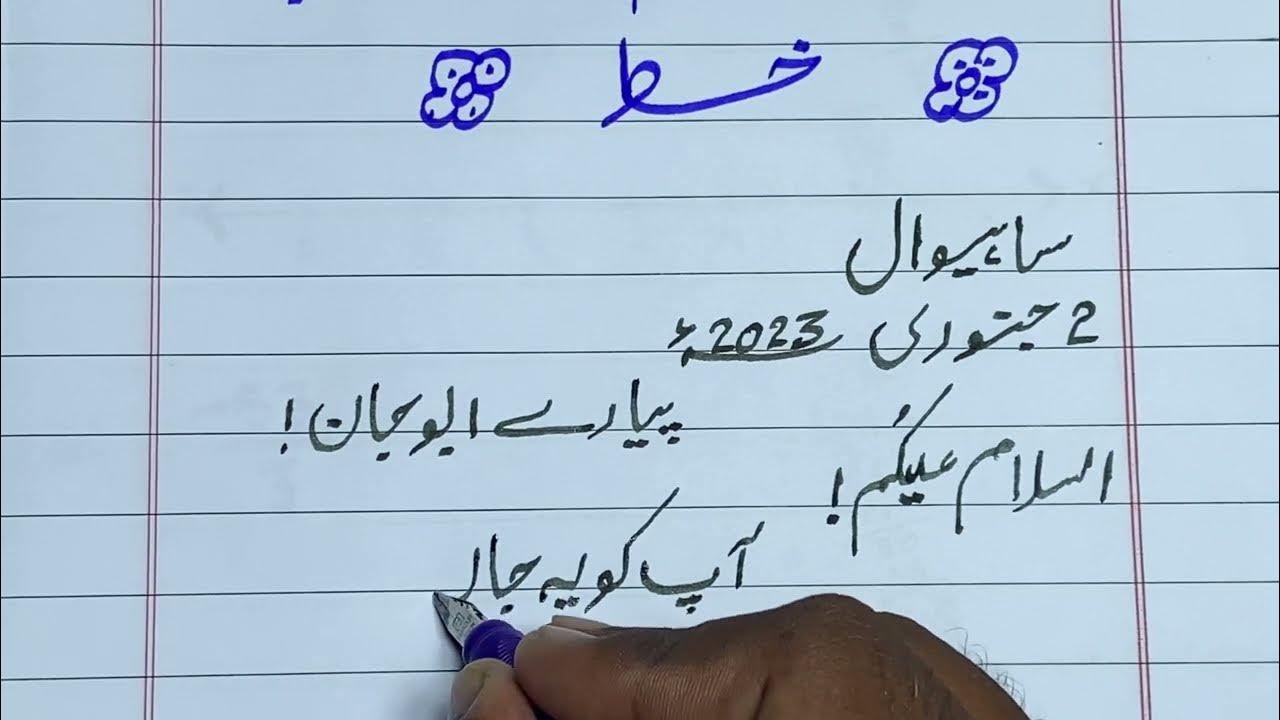 خط
ساہیوال
2 جنوری 2023ء
پیارے ابو جان!
السلام علیکُم!
آپ کو یہ جا